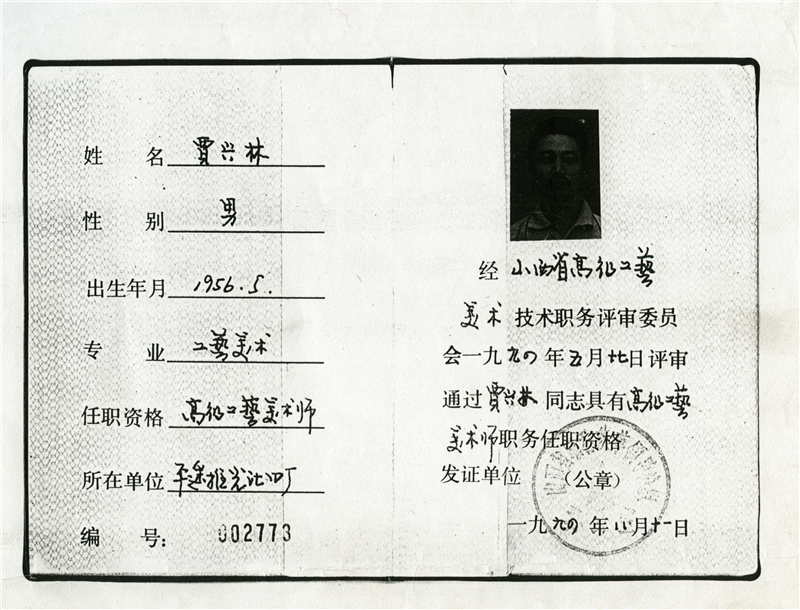 姓 名 贾兴林
性 别 男
出生年月 1956.5.
专 业 工艺美术
任职资格 高级工艺美术师
所在单位 平遥推光沈四厂
编 号: 002773
经 山西省高级工艺
美术 技术职务评审委员
会一九九四年五月廿日评审
通过贾兴林 同志具有高级工艺
美术师职务任职资格
发证单位 (公章)
一九九四 年 八月十一日